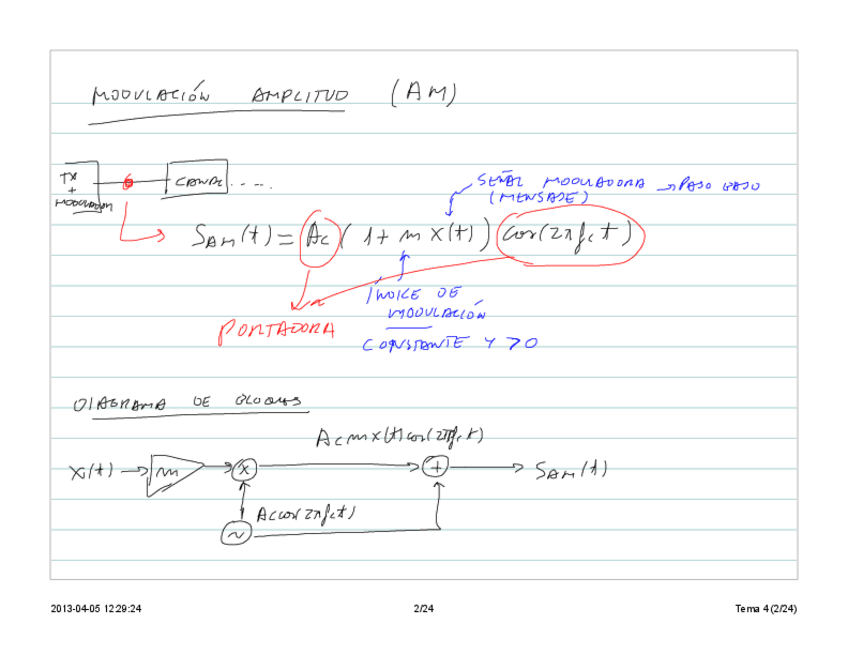 MODULACIÓN AMPLITUD (AM)
TX
+
MODULADOR
CANAL .....
SEÑAL MODULADORA → PASO BAJO
(MENSAJE)
S_AM(t) = Ac (1 + m x(t)) cos(2πfct)
ÍNDICE DE
MODULACIÓN
PORTADORA
CONSTANTE Y >0
DIAGRAMA DE BLOQUES
Ac m x(t) cos(2πfct)
x(t) → m → x → + → S_AM(t)
Ac cos(2πfct)
~
2013-04-05 12:29:24
2/24
Tema 4 (2/24)